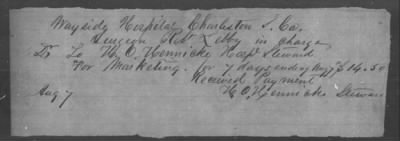 Wayside Hospital Charleston S. Co.
Surgeon Rbt Lebby in charge
Dr To H. O. Hennicke Hosp Steward
For Marketing for 7 days ending Aug 7 $14.50
Received Payment
Aug 7 H. O. Hennicke Steward